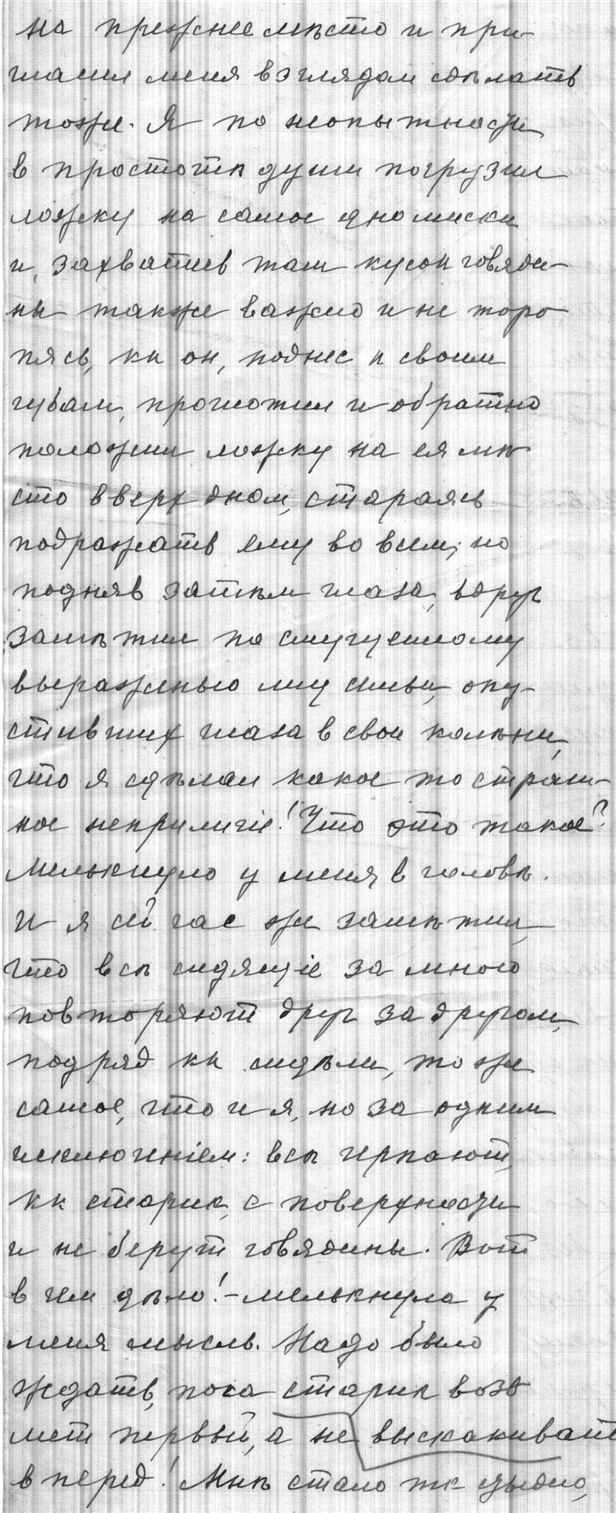 на прежнее мѣсто и при-
гласил меня взглядом сдѣлать
тоже. Я по неопытности
в простотѣ души погрузил
ложку на самое дно миски
и, захватив там кусок говяди-
ны также важно и не торо
пясь, кк он, поднес к своим
губам, проглотил и обратно
положил ложку на ея мѣ
сто вверх дном, стараясь
подражать ему во всем, но
подняв затѣм глаза, вдруг
замѣтил по смущенному
выраженью лиц семьи, опу-
стивших глаза в свои колѣни,
что я сдѣлал какое то страш-
ное неприличіе! Что это такое?
Мелькнуло у меня в головѣ.
И я сейчас же замѣтил,
что всѣ сидящіе за мною
повторяют друг за другом,
подряд кк сидѣли, то же
самое, что и я, но за одним
исключеніем: всѣ черпают,
кк старик, с поверхности
и не берут говядины. Вот
в чем дѣло! – мелькнула у
меня мысль. Надо было
ждать, пока старик возь
мет первый, а не выскакивать
в перед! Мнѣ стало тк стыдно,